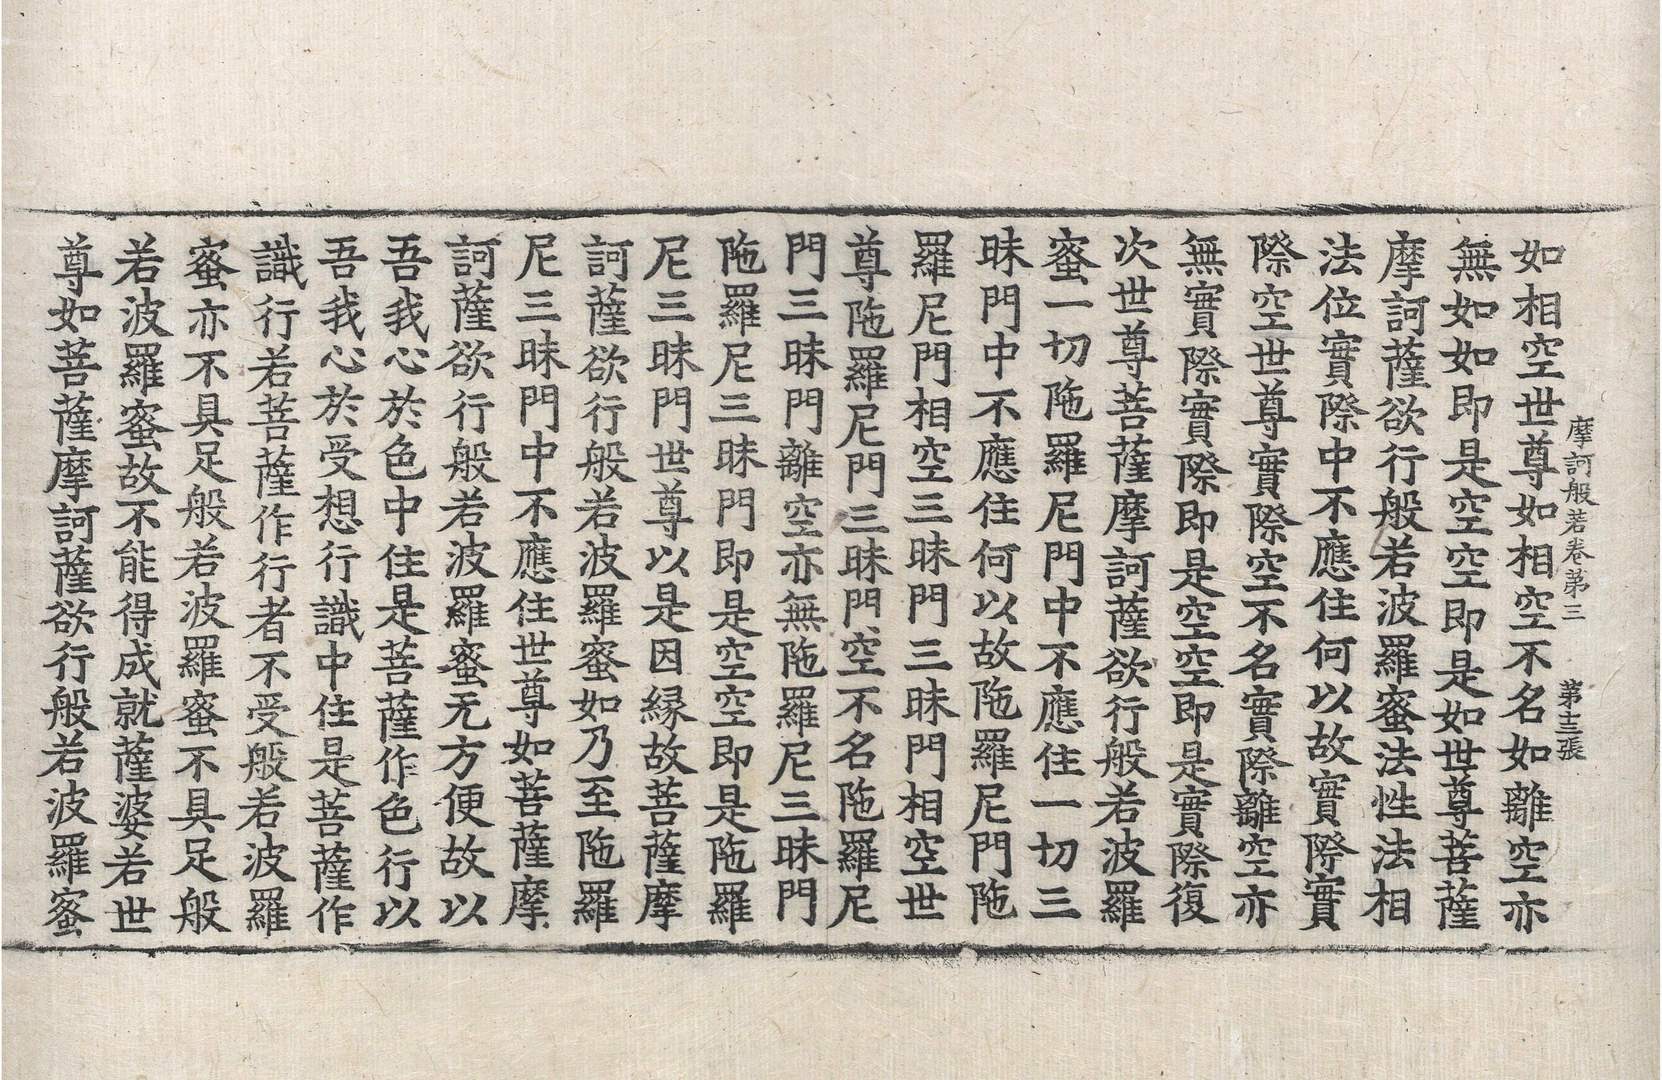 摩訶般若卷第三　第十三張
如相空世尊如相空不名如離空亦
無如如即是空空即是如世尊菩薩
摩訶薩欲行般若波羅蜜法性法相
法位實際中不應住何以故實際實
際空世尊實際空不名實際離空亦
無實際實際即是空空即是實際復
次世尊菩薩摩訶薩欲行般若波羅
蜜一切陁羅尼門中不應住一切三
昧門中不應住何以故陁羅尼門陁
羅尼門相空三昧門三昧門相空世
尊陁羅尼門三昧門空不名陁羅尼
門三昧門離空亦無陁羅尼三昧門
陁羅尼三昧門即是空空即是陁羅
尼三昧門世尊以是因緣故菩薩摩
訶薩欲行般若波羅蜜如乃至陁羅
尼三昧門中不應住世尊如菩薩摩
訶薩欲行般若波羅蜜无方便故以
吾我心於色中住是菩薩作色行以
吾我心於受想行識中住是菩薩作
識行若菩薩作行者不受般若波羅
蜜亦不具足般若波羅蜜不具足般
若波羅蜜故不能得成就薩婆若世
尊如菩薩摩訶薩欲行般若波羅蜜